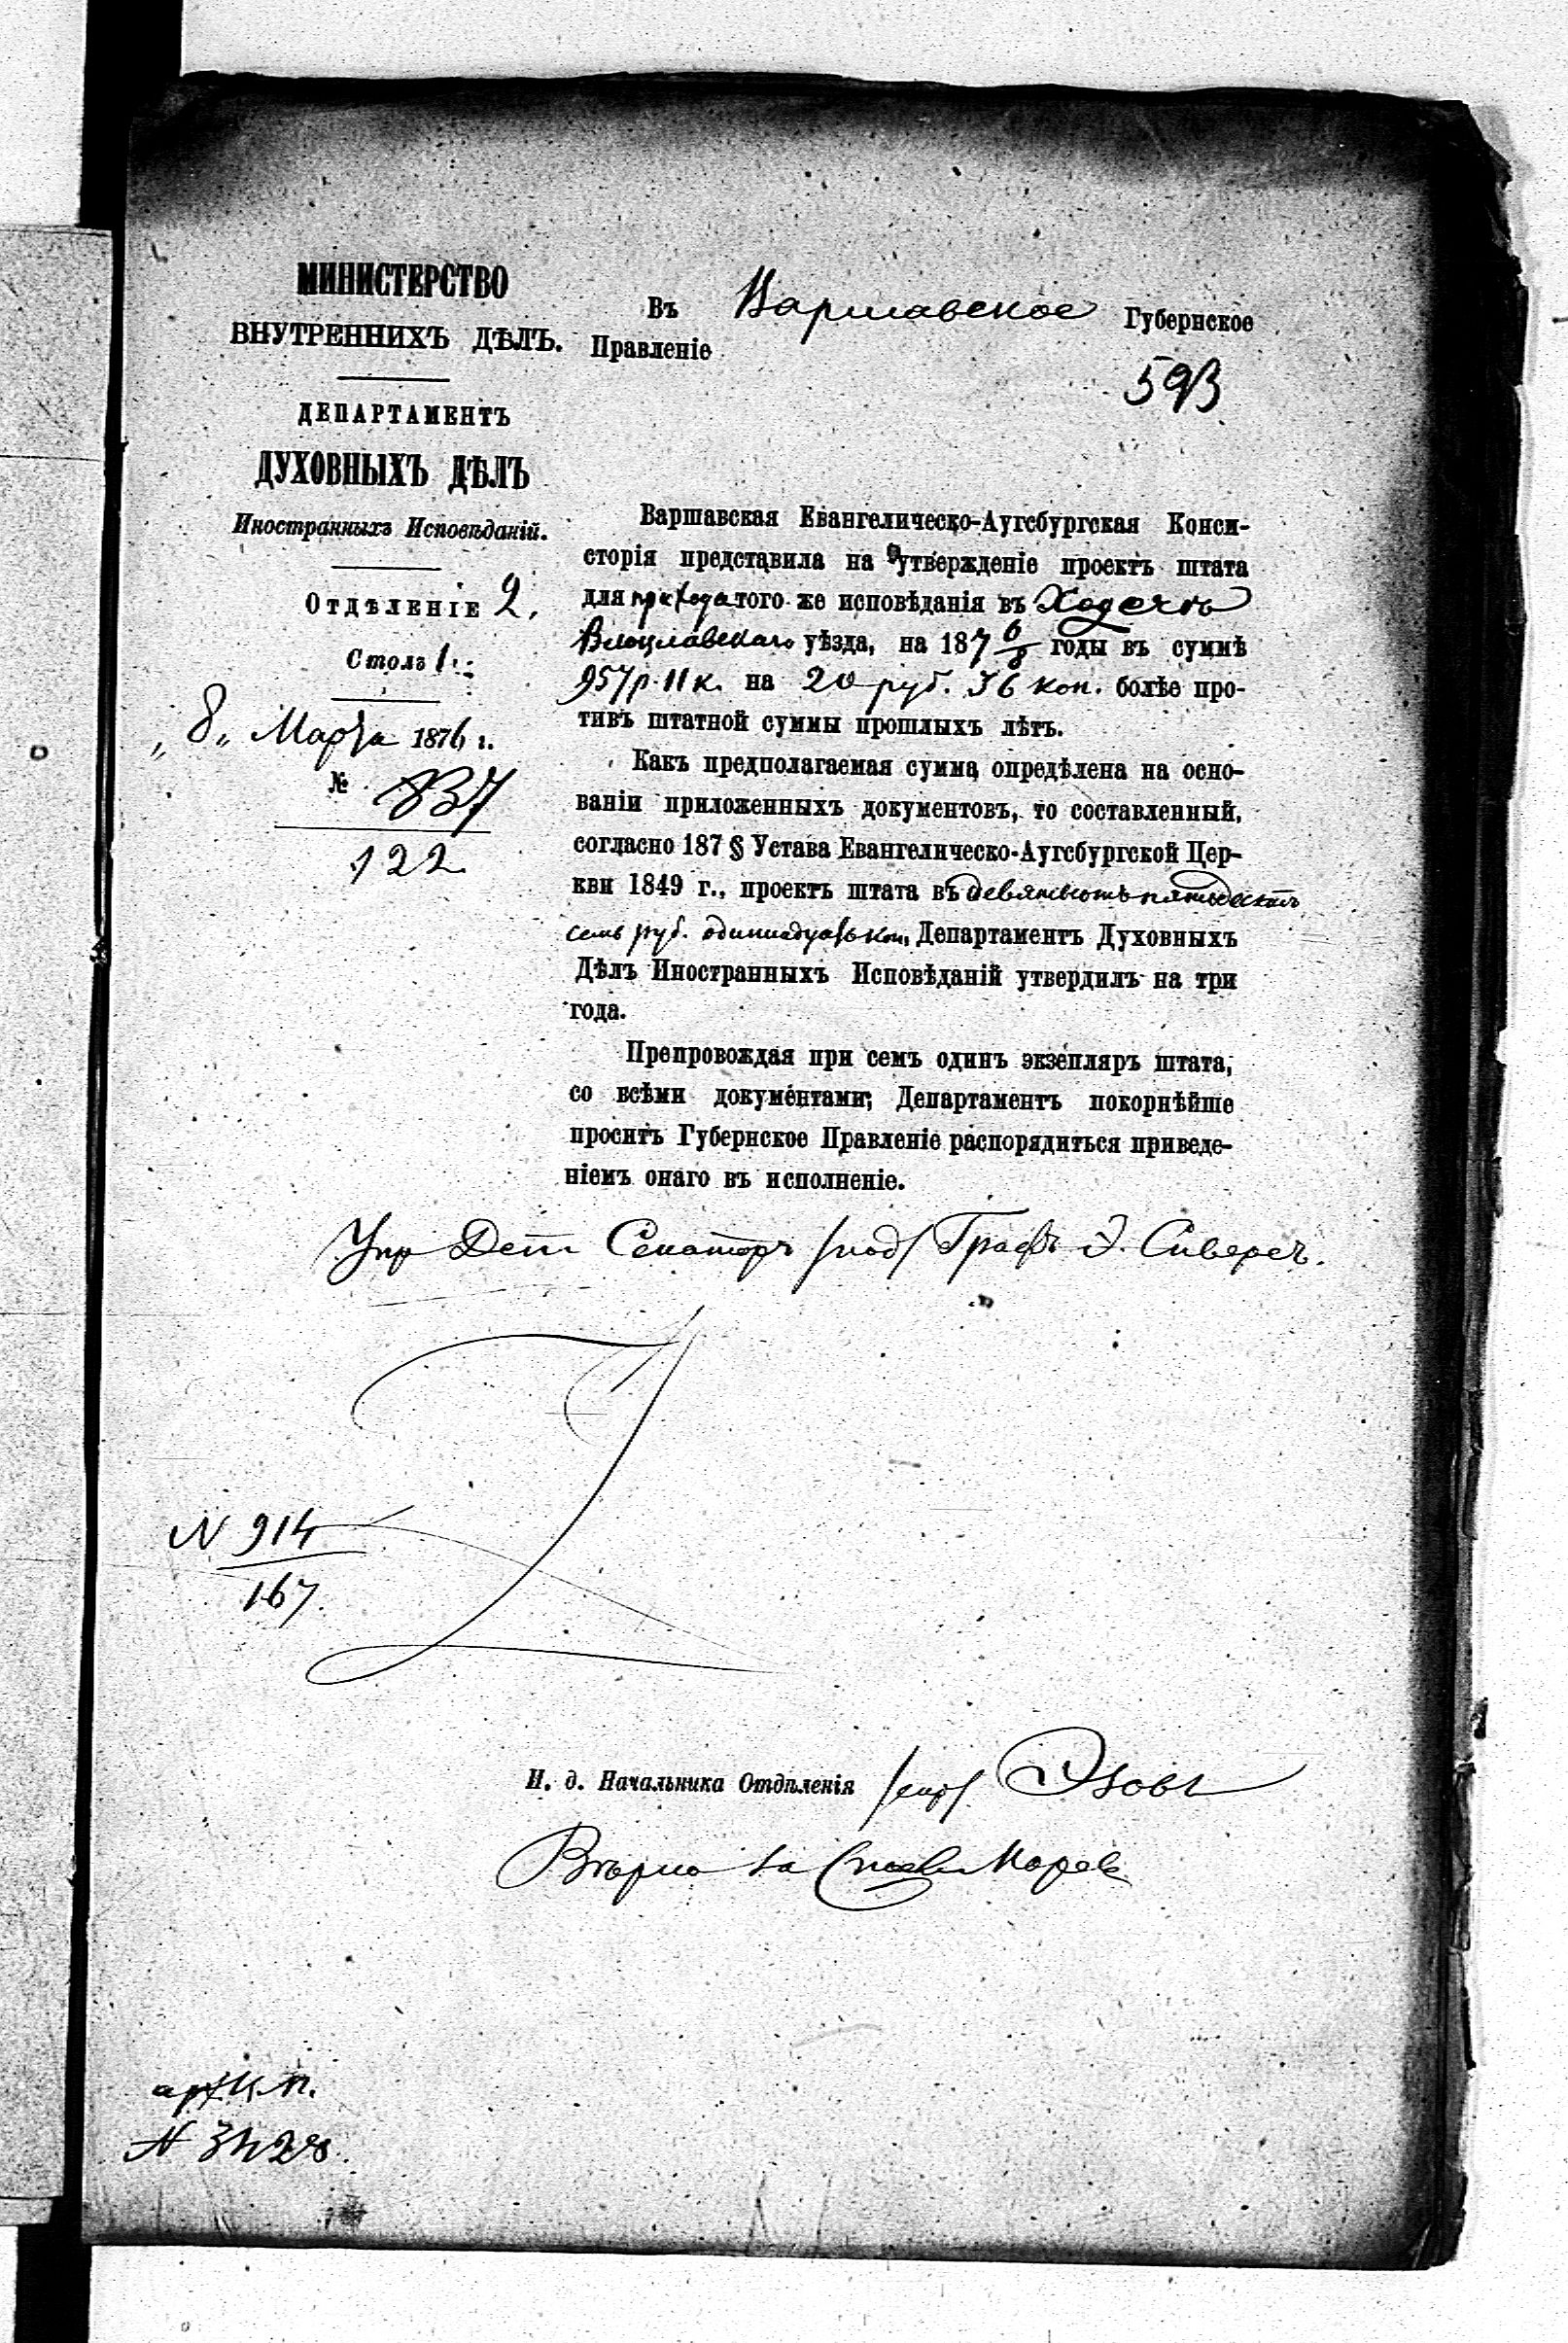 МИНИСТЕРСТВО
ВНУТРЕННИХЪ ДѢЛЪ.
ДЕПАРТАМЕНТЪ
ДУХОВНЫХЪ ДѢЛЪ
Иностранныхъ Исповѣданій.
Отдѣленіе 2.
Столъ 1.
„8„ Марта 1876 г.
№ 837
122
Въ Варшавское Губернское
Правленіе
593
Варшавская Евангелическо-Аугсбургская Конси-
сторія представила на утвержденіе проектъ штата
для прихода того же исповѣданія въ Ходечѣ
Влоцлавскаго уѣзда, на 187 6/8 годы въ суммѣ
957 р. 11 к. на 20 руб. 36 коп. болѣе про-
тивъ штатной суммы прошлыхъ лѣтъ.
Какъ предполагаемая сумма опредѣлена на осно-
ваніи приложенныхъ документовъ, то составленный,
согласно 187 § Устава Евангелическо-Аугсбургской Цер-
кви 1849 г., проектъ штата въ девятьсотъ пятьдесятъ
семь руб. одинадцать коп. Департаментъ Духовныхъ
Дѣлъ Иностранныхъ Исповѣданій утвердилъ на три
года.
Препровождая при семъ одинъ экземпляръ штата,
со всѣми документами, Департаментъ покорнѣйше
проситъ Губернское Правленіе распорядиться приведе-
ніемъ онаго въ исполненіе.
Упр Деп Сенаторъ /под/ Графъ Э. Сиверсъ.
N 914
167.
И. д. Начальника Отдѣленія /скр/ Эзовъ
Вѣрно за
N 3428.